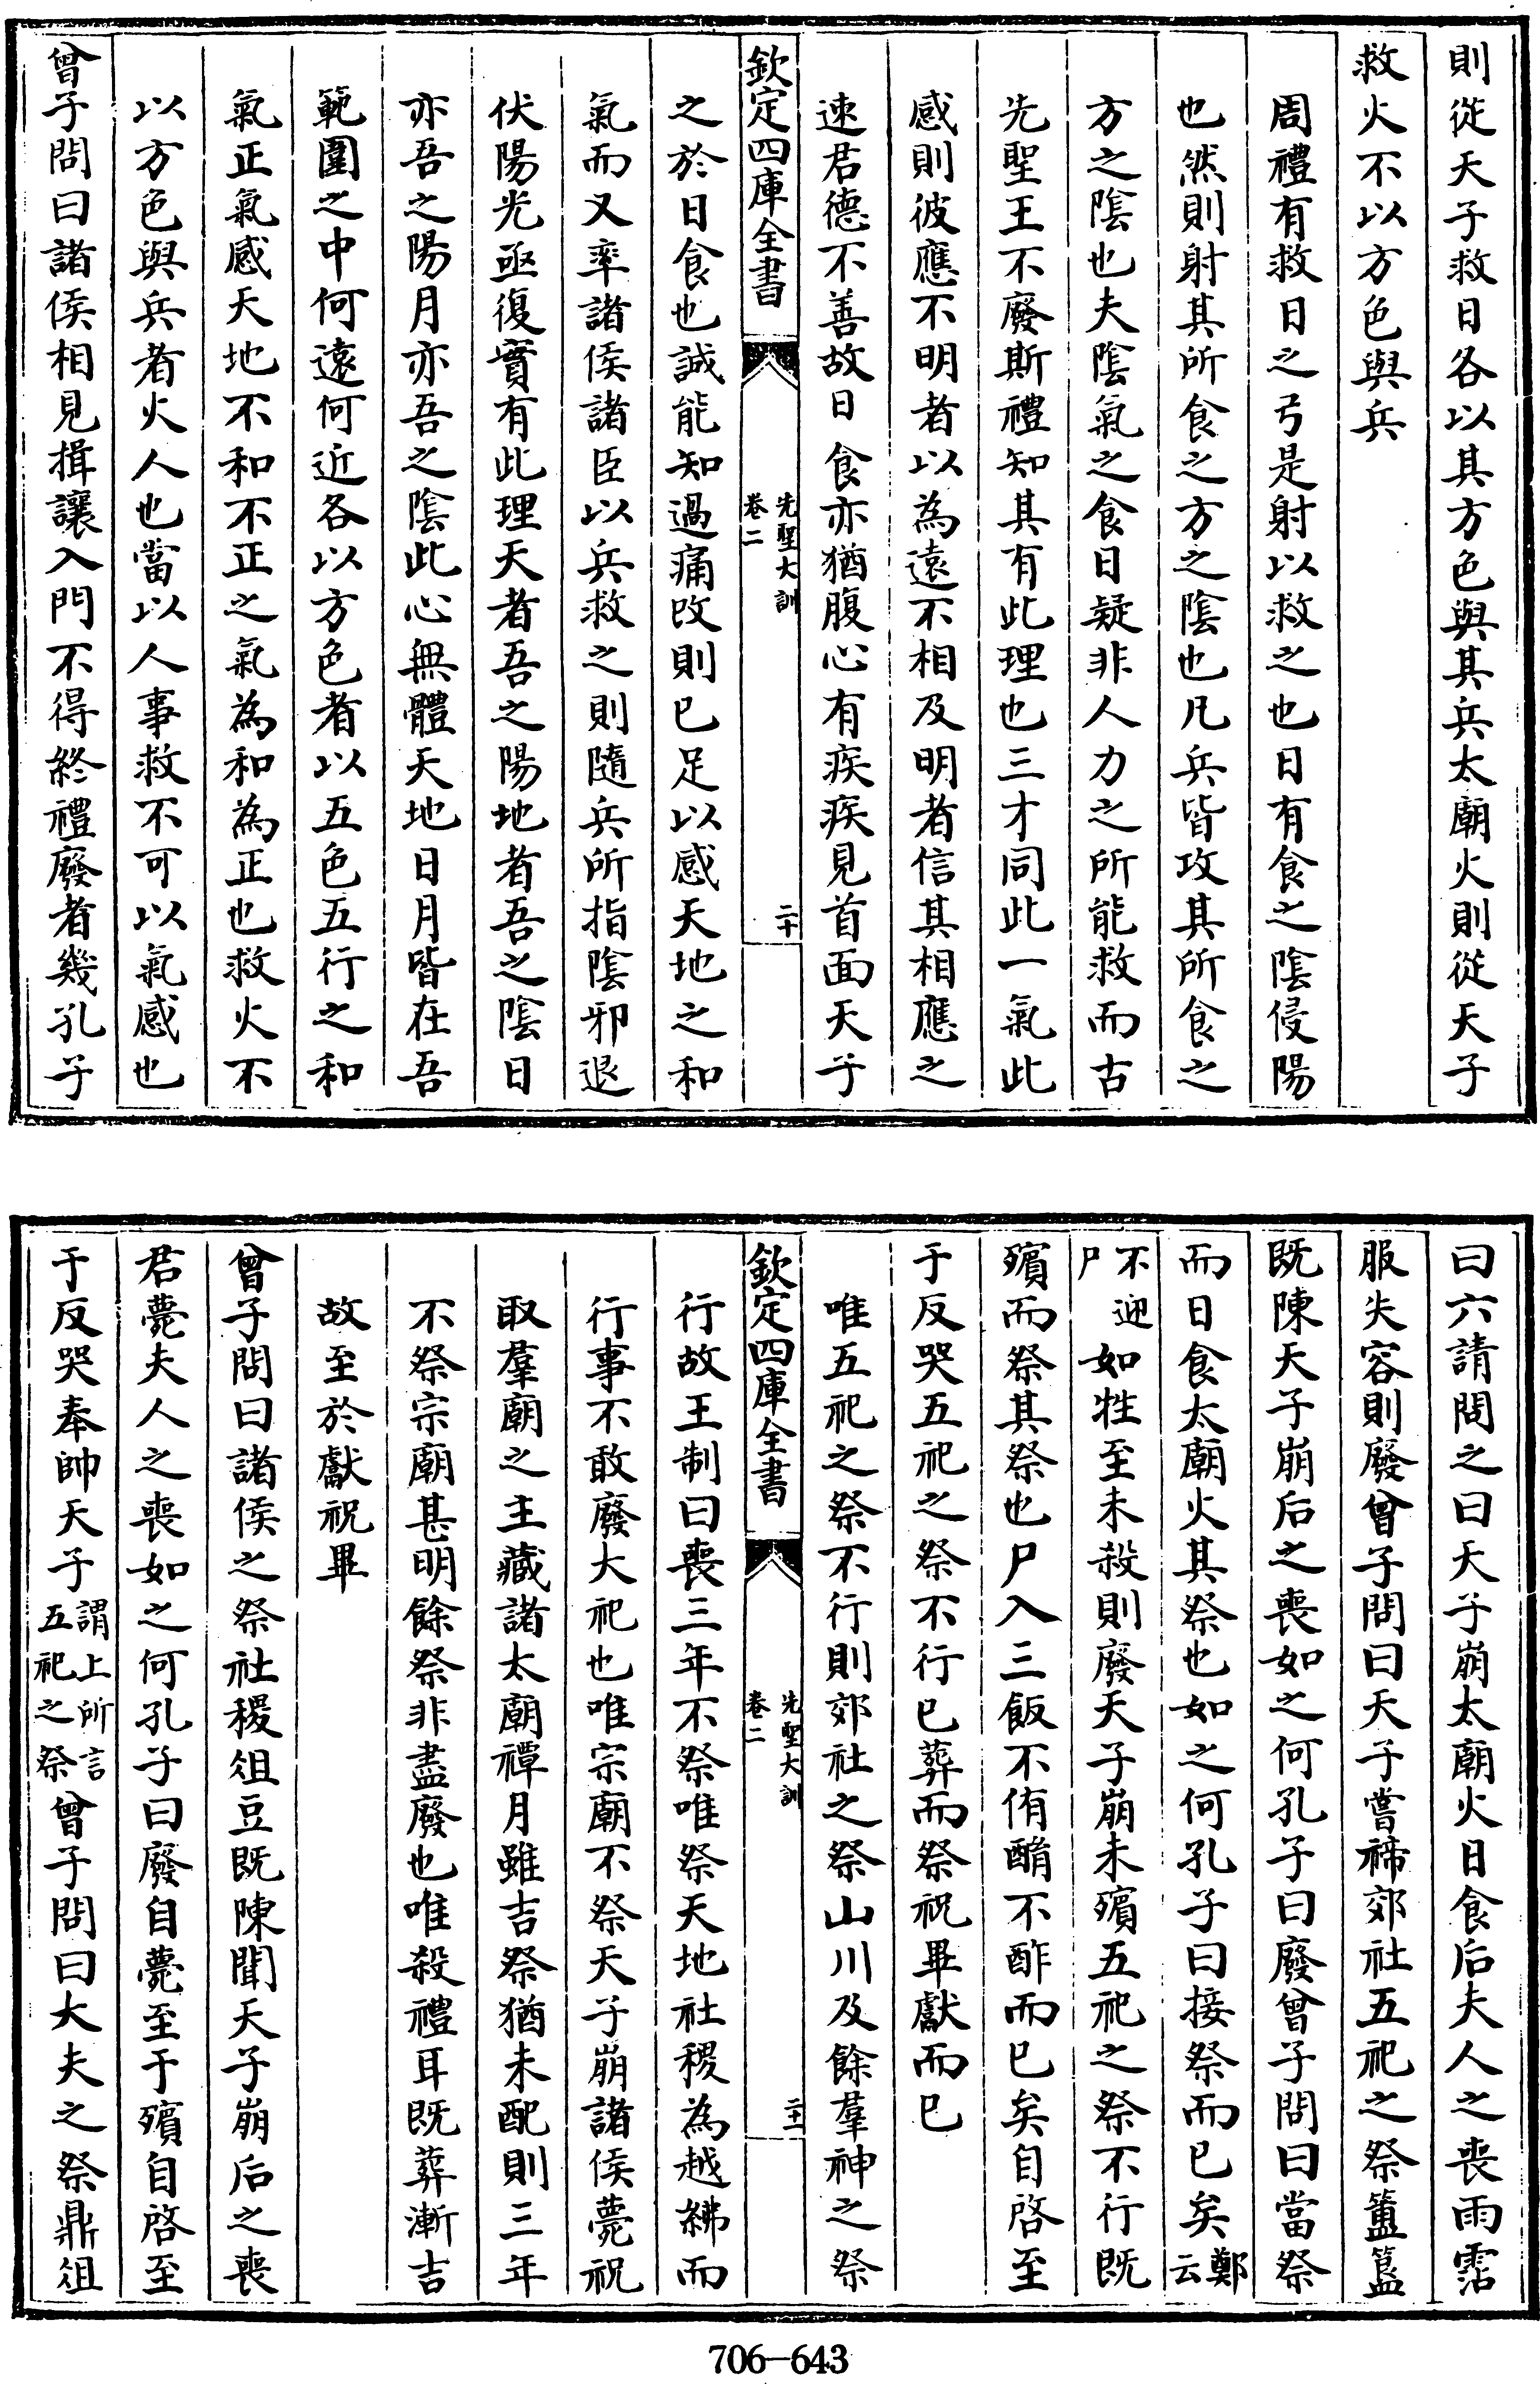 則從天子救日各以其方色與其兵太廟火則從天子
救火不以方色與兵
周禮有救日之弓是射以救之也日有食之隂侵陽
也然則射其所食之方之隂也凡兵皆攻其所食之
方之隂也夫隂氣之食日疑非人力之所能救而古
先聖王不廢斯禮知其有此理也三才同此一氣此
感則彼應不明者以為遠不相及明者信其相應之
速君德不善故日食亦猶腹心有疾疾見首面天子
欽定四庫全書
先聖大訓
卷二
二十
之於日食也誠能知過痛改則已足以感天地之和
氣而又率諸侯諸臣以兵救之則隨兵所指隂邪退
伏陽光亟復實有此理天者吾之陽地者吾之隂日
亦吾之陽月亦吾之隂此心無體天地日月皆在吾
範圍之中何遠何近各以方色者以五色五行之和
氣正氣感天地不和不正之氣為和為正也救火不
以方色與兵者火人也當以人事救不可以氣感也
曾子問曰諸侯相見揖讓入門不得終禮廢者幾孔子
曰六請問之曰天子崩太廟火日食后夫人之喪雨霑
服失容則廢曾子問曰天子嘗禘郊社五祀之祭簠簋
既陳天子崩后之喪如之何孔子曰廢曾子問曰當祭
而日食太廟火其祭也如之何孔子曰接祭而已矣鄭云
不迎尸如牲至未殺則廢天子崩未殯五祀之祭不行既
殯而祭其祭也尸入三飯不侑酳不酢而已矣自啓至
于反哭五祀之祭不行已葬而祭祝畢獻而已
唯五祀之祭不行則郊社之祭山川及餘羣神之祭
欽定四庫全書
先聖大訓
卷二
二十一
行故王制曰喪三年不祭唯祭天地社稷為越紼而
行事不敢廢大祀也唯宗廟不祭天子崩諸侯薨祝
取羣廟之主藏諸太廟禫月雖吉祭猶未配則三年
不祭宗廟甚明餘祭非盡廢也唯殺禮耳既葬漸吉
故至於獻祝畢
曾子問曰諸侯之祭社稷俎豆既陳聞天子崩后之喪
君薨夫人之喪如之何孔子曰廢自薨至于殯自啓至
于反哭奉帥天子謂上所言五祀之祭曾子問曰大夫之祭鼎俎
706-643